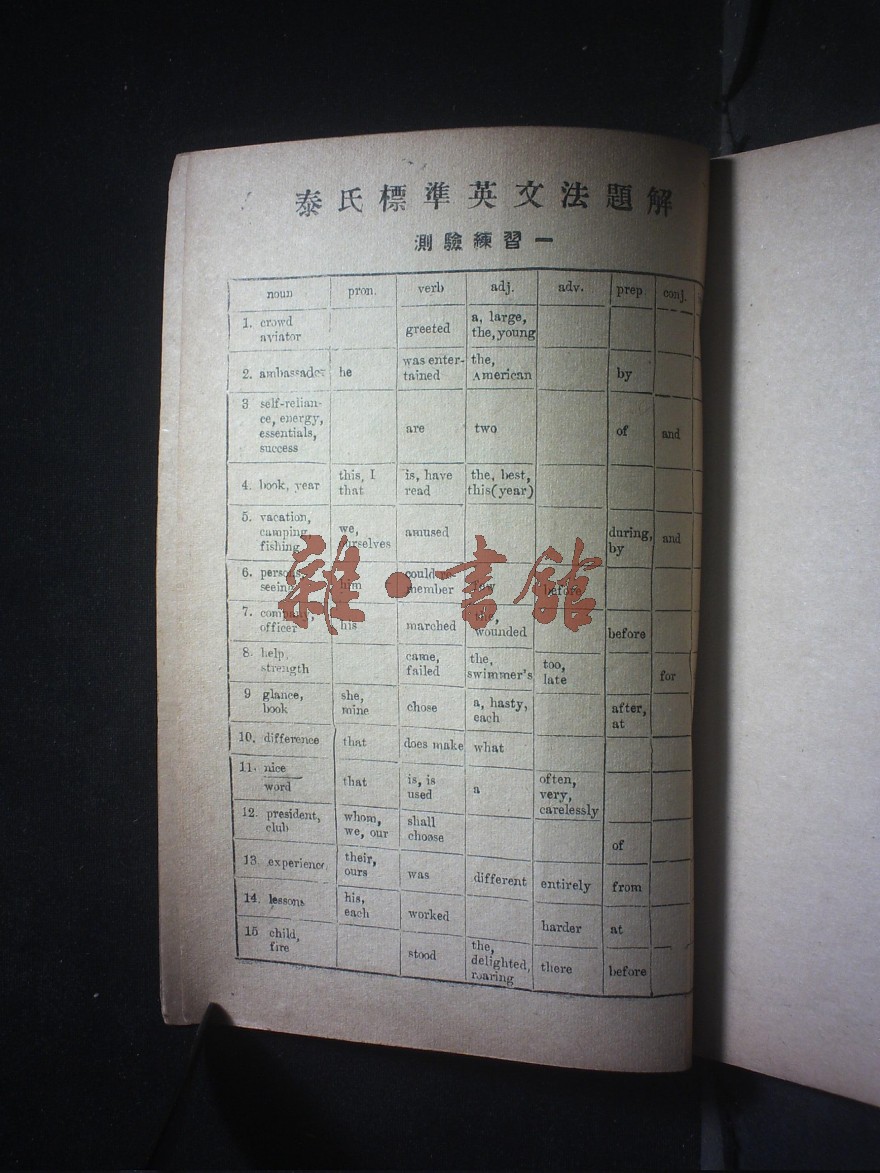 泰氏標準英文法題解
測驗練習一
noun pron. verb adj. adv. prep. conj.
1. crowd aviator greeted a, large, the, young
2. ambassador he was enter-tained the, American by
3 self-relian-ce, energy, essentials, success are two of and
4. book, year this, I that is, have read the, best, this(year)
5. vacation, camping, fishing we, ourselves amused during, by and
6. persons, seeing him could re-member few before
7. company, officer his marched the, wounded before
8. help, strength came, failed the, swimmer's too, late for
9 glance, book she, mine chose a, hasty, each after, at
10. difference that does make what
11. nice word that is, is used a often, very, carelessly
12. president, club whom, we, our shall choose of
13. experience their, ours was different entirely from
14. lessons his, each worked harder at
15 child, fire stood the, delighted, roaring there before
雜·書館